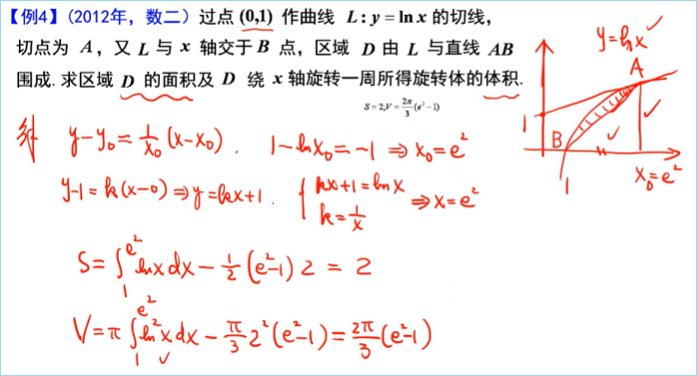 【例4】(2012年，数二）过点 (0,1) 作曲线 L : y = ln x 的切线，
切点为 A，又 L 与 x 轴交于 B 点，区域 D 由 L 与直线 AB
围成. 求区域 D 的面积及 D 绕 x 轴旋转一周所得旋转体的体积.
S = 2,V = 2π/3 (e² −1)
解 y−y₀ = 1/x₀ (x−x₀). 1−ln x₀ = −1 ⇒ x₀ = e²
y−1 = k(x−0) ⇒ y = kx+1. { kx+1 = ln x
k = 1/x ⇒ x = e²
S = ∫₁^{e²} ln x dx − 1/2 (e²−1) 2 = 2
V = π ∫₁^{e²} ln² x dx − π/3 2² (e²−1) = 2π/3 (e²−1)
y = ln x
A
1
B
1
x₀ = e²